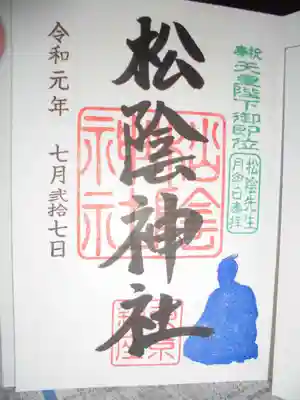 奉祝
天皇陛下御即位
松陰先生
月命日参拝
松陰神社
松陰
神社
令和元年 七月弐拾七日